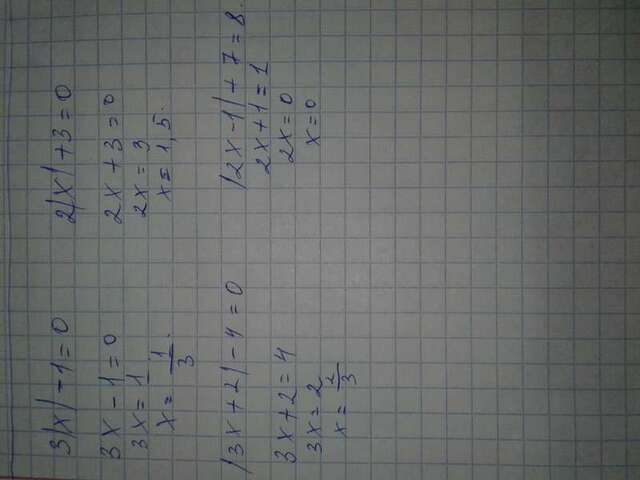 3|x| - 1 = 0
3x - 1 = 0
3x = 1
x = 1/3.
2|x| + 3 = 0
2x + 3 = 0
2x = 3
x = 1,5.
|3x + 2| - 4 = 0
3x + 2 = 4
3x = 2
x = 2/3
|2x - 1| + 7 = 8.
2x + 1 = 1
2x = 0
x = 0